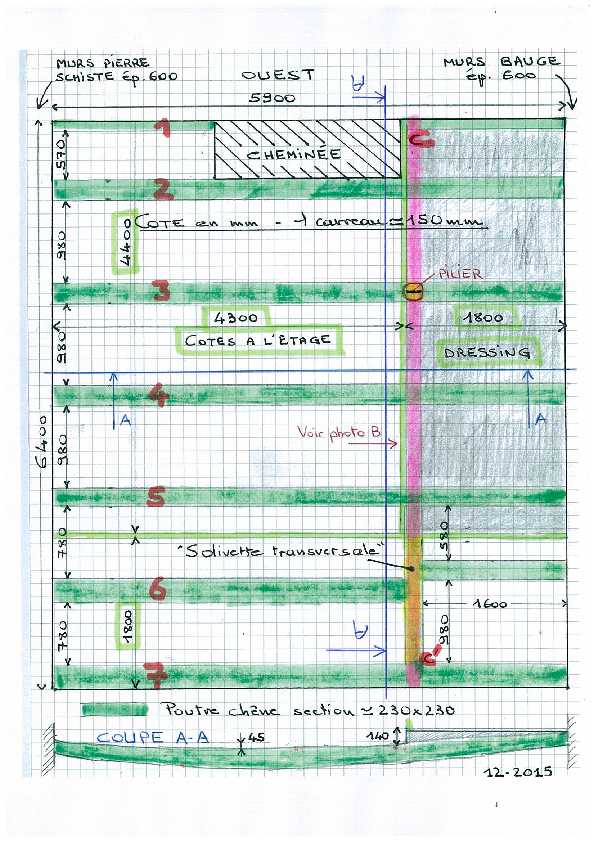 MURS PIERRE
SCHISTE ép.600
OUEST
MURS BAUGE
ép. 600
A
5900
1
C
570
CHEMINÉE
2
COTE en mm - 1 carreau ≃ 150mm
4400
980
PILIER
3
4300
1800
980
COTES A L'ÉTAGE
DRESSING
4
A
A
6400
980
Voir photo B
5
780
580
"Solivette transversale"
6
1600
780
1800
980
A
C'
7
Poutre chêne section ≃ 230x230
COUPE A-A
45
140
12-2015